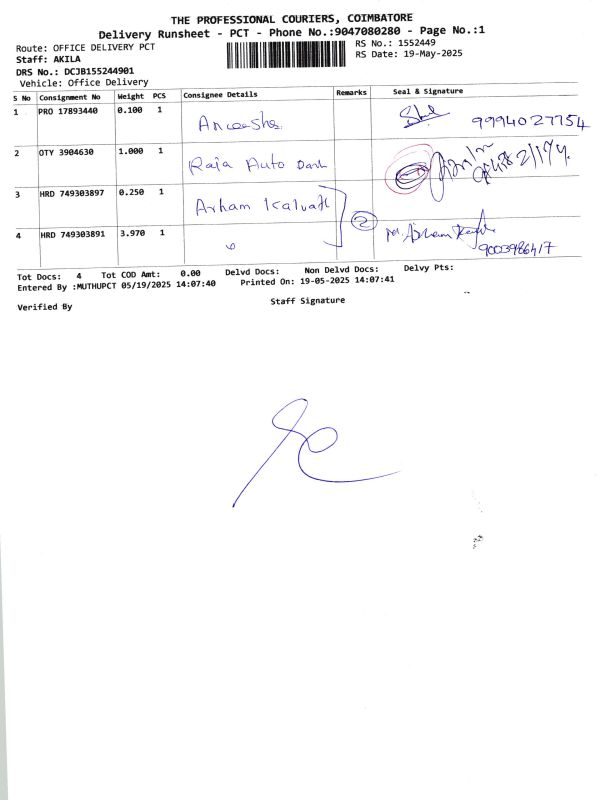 THE PROFESSIONAL COURIERS, COIMBATORE
Delivery Runsheet - PCT - Phone No.:9047080280 - Page No.:1
Route: OFFICE DELIVERY PCT
RS No.: 1552449
Staff: AKILA
RS Date: 19-May-2025
DRS No.: DCJB155244901
Vehicle: Office Delivery
S No Consignment No Weight PCS Consignee Details Remarks Seal & Signature
1 PRO 17893440 0.100 1 Aneesha 9994027754
2 OTY 3904630 1.000 1 Raja Auto
3 HRD 749303897 0.250 1 Arham
2
4 HRD 749303891 3.970 1 9003986417
Tot Docs: 4 Tot COD Amt: 0.00 Delvd Docs: Non Delvd Docs: Delvy Pts:
Entered By :MUTHUPCT 05/19/2025 14:07:40 Printed On: 19-05-2025 14:07:41
Verified By Staff Signature